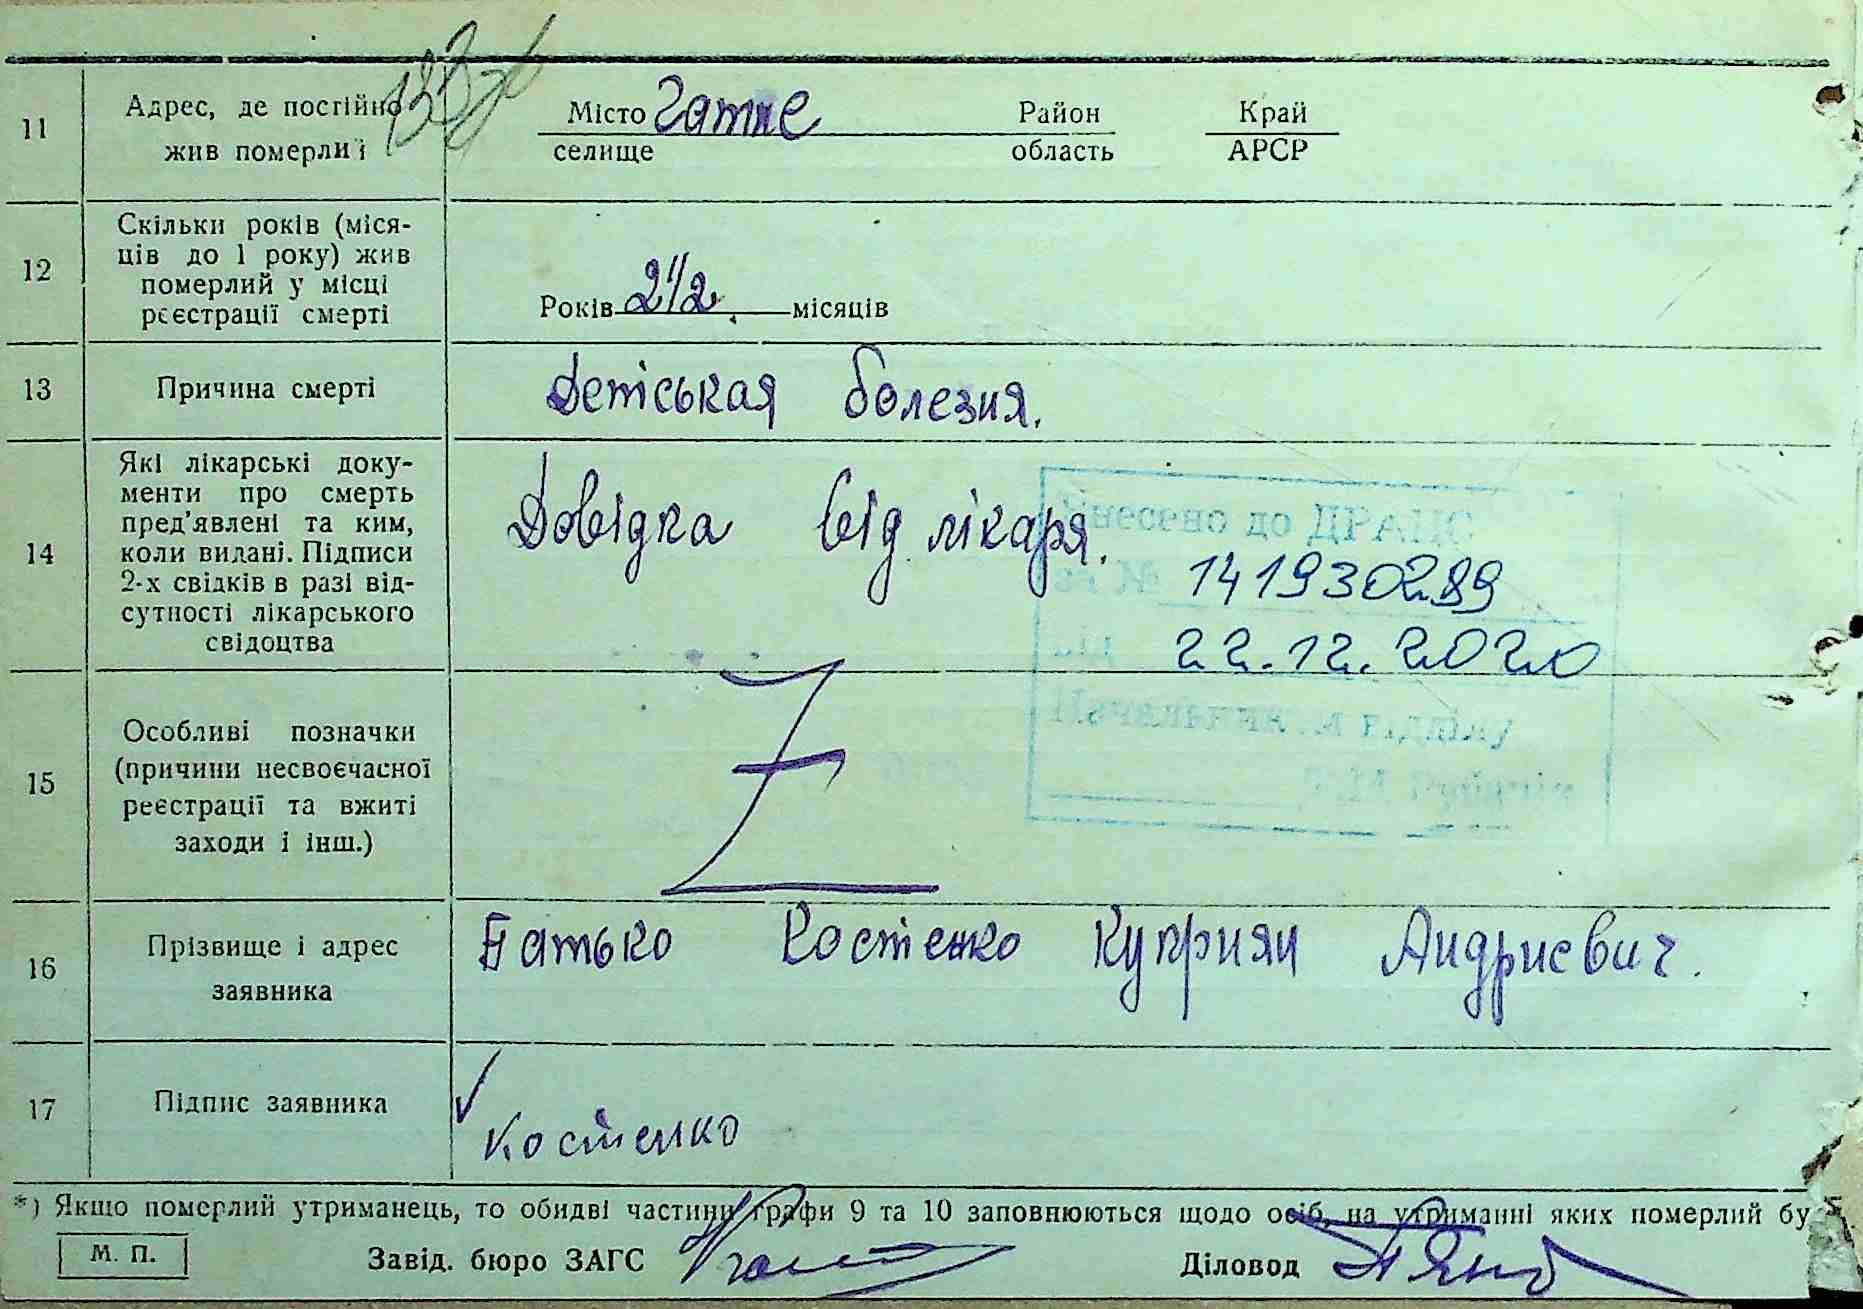 11
Адрес, де постійно
жив померлий
Місто Гатне Район Край
селище область АРСР
12
Скільки років (міся-
ців до 1 року) жив
померлий у місці
реєстрації смерті
Років 2 1/2. місяців
13
Причина смерті
Детіськая болезия.
14
Які лікарські доку-
менти про смерть
пред'явлені та ким,
коли видані. Підписи
2-х свідків в разі від-
сутності лікарського
свідоцтва
Довідка від лікаря.
Внесено до ДРАЦС
№ 141930289
від 22.12.2020
відділу
15
Особливі позначки
(причини несвоєчасної
реєстрації та вжиті
заходи і інш.)
Z
16
Прізвище і адрес
заявника
Батько Костенко Куприян Андриевич.
17
Підпис заявника
Костенко
*) Якщо померлий утриманець, то обидві частини графи 9 та 10 заповнюються щодо осіб, на утриманні яких померлий бу
М. П. Завід. бюро ЗАГС Діловод